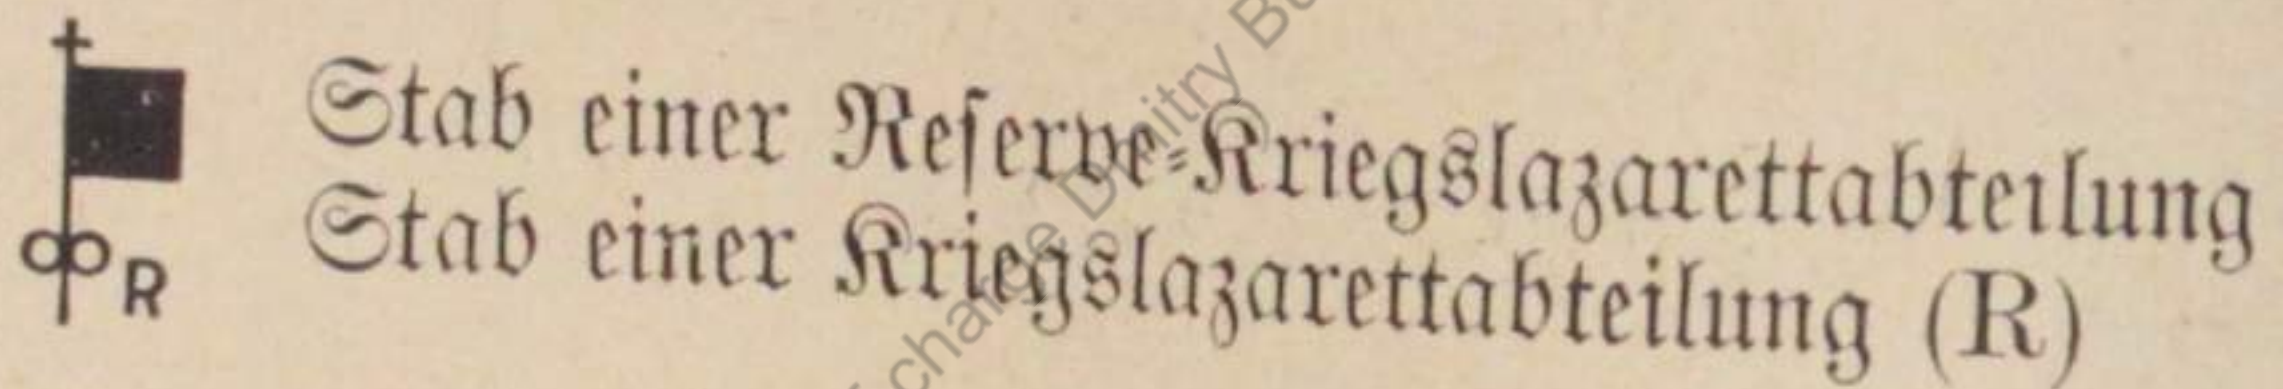 Stab einer Reserve-Kriegslazarettabteilung
Stab einer Kriegslazarettabteilung (R)
R